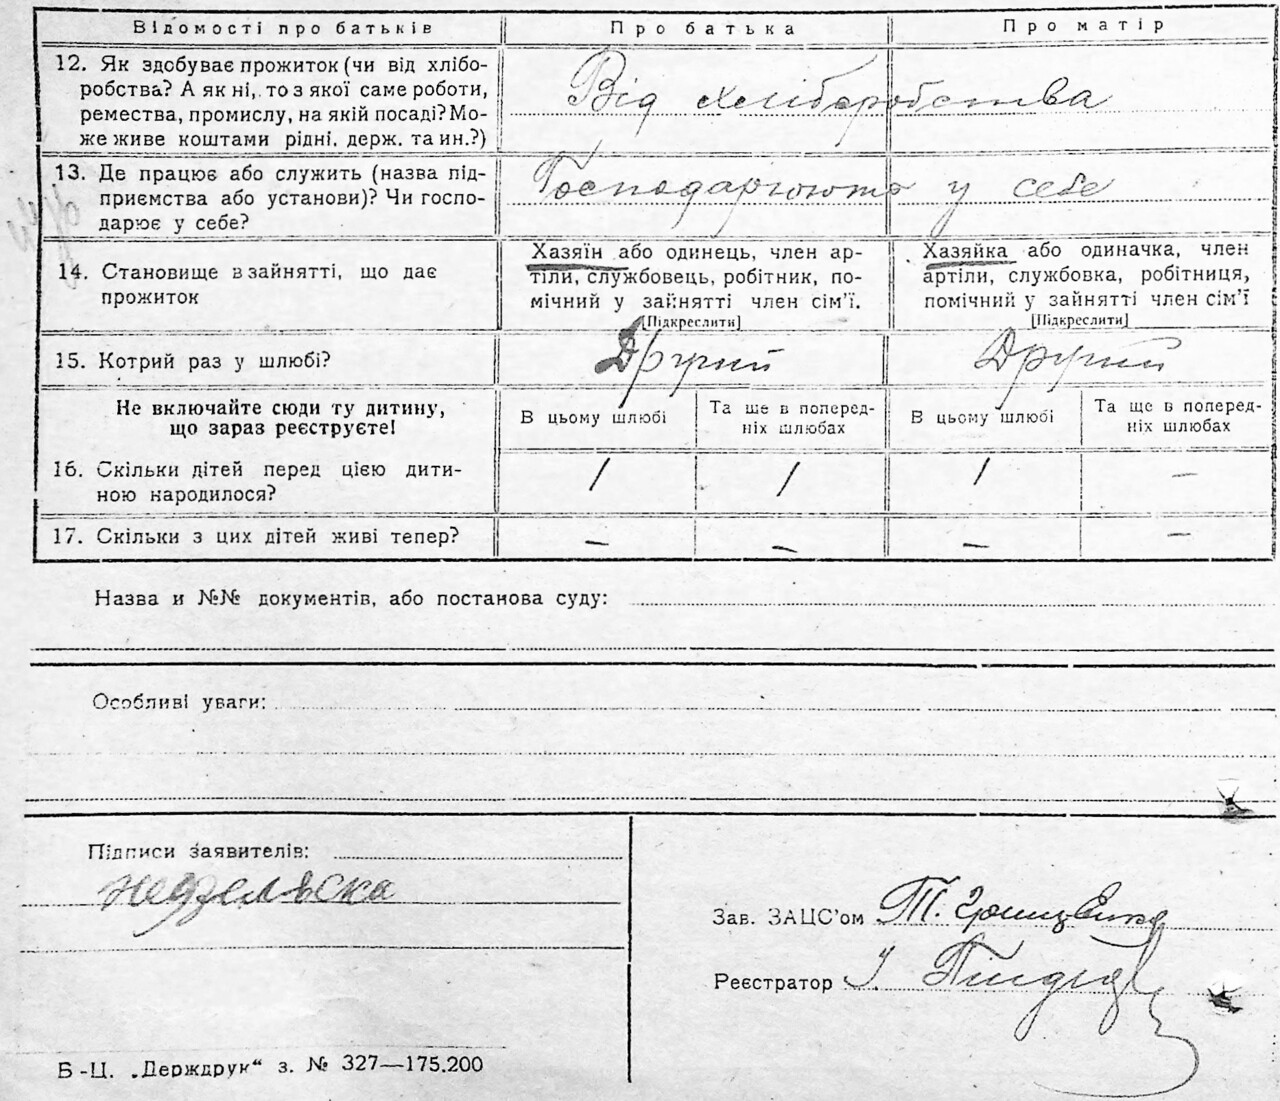 Відомості про батьків Про батька Про матір
12. Як здобуває прожиток (чи від хлібо-
робства? А як ні, то з якої саме роботи,
ремества, промислу, на якій посаді? Мо-
же живе коштами рідні, держ. та ин.?)
Від хліборобства
13. Де працює або служить (назва під-
приємства або установи)? Чи госпо-
дарює у себе?
Господарюють у себе
14. Становище в зайнятті, що дає
прожиток
Хазяїн або одинець, член ар-
тіли, службовець, робітник, по-
мічний у зайнятті член сім'ї.
[Підкреслити]
Хазяйка або одиначка, член
артіли, службовка, робітниця,
помічний у зайнятті член сім'ї
[Підкреслити]
15. Котрий раз у шлюбі? Другий Другий
Не включайте сюди ту дитину,
що зараз реєструєте!
В цьому шлюбі
Та ще в поперед-
ніх шлюбах
В цьому шлюбі
Та ще в поперед-
ніх шлюбах
16. Скільки дітей перед цією дити-
ною народилося?
1 1 1 –
17. Скільки з цих дітей живі тепер? – – – –
Назва и №№ документів, або постанова суду:
Особливі уваги:
Підписи заявителів:
Зав. ЗАЦС'ом Т.
Реєстратор
Б-Ц. „Держдрук“ з. № 327—175.200